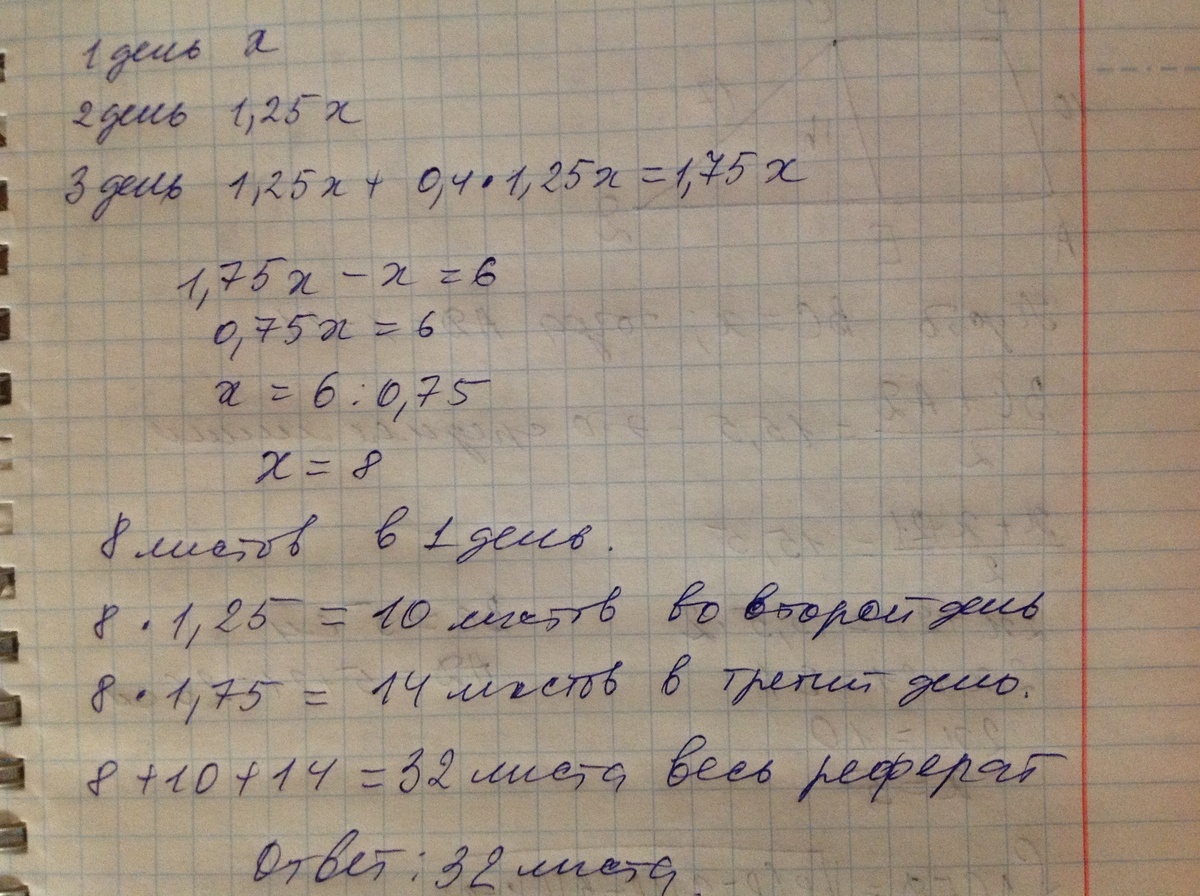 1 день x
2 день 1,25x
3 день 1,25x + 0,4 • 1,25x = 1,75x
1,75x - x = 6
0,75x = 6
x = 6 : 0,75
x = 8
8 листов в 1 день.
8 • 1,25 = 10 листов во второй день
8 • 1,75 = 14 листов в третий день.
8 + 10 + 14 = 32 листа весь реферат
Ответ: 32 листа.